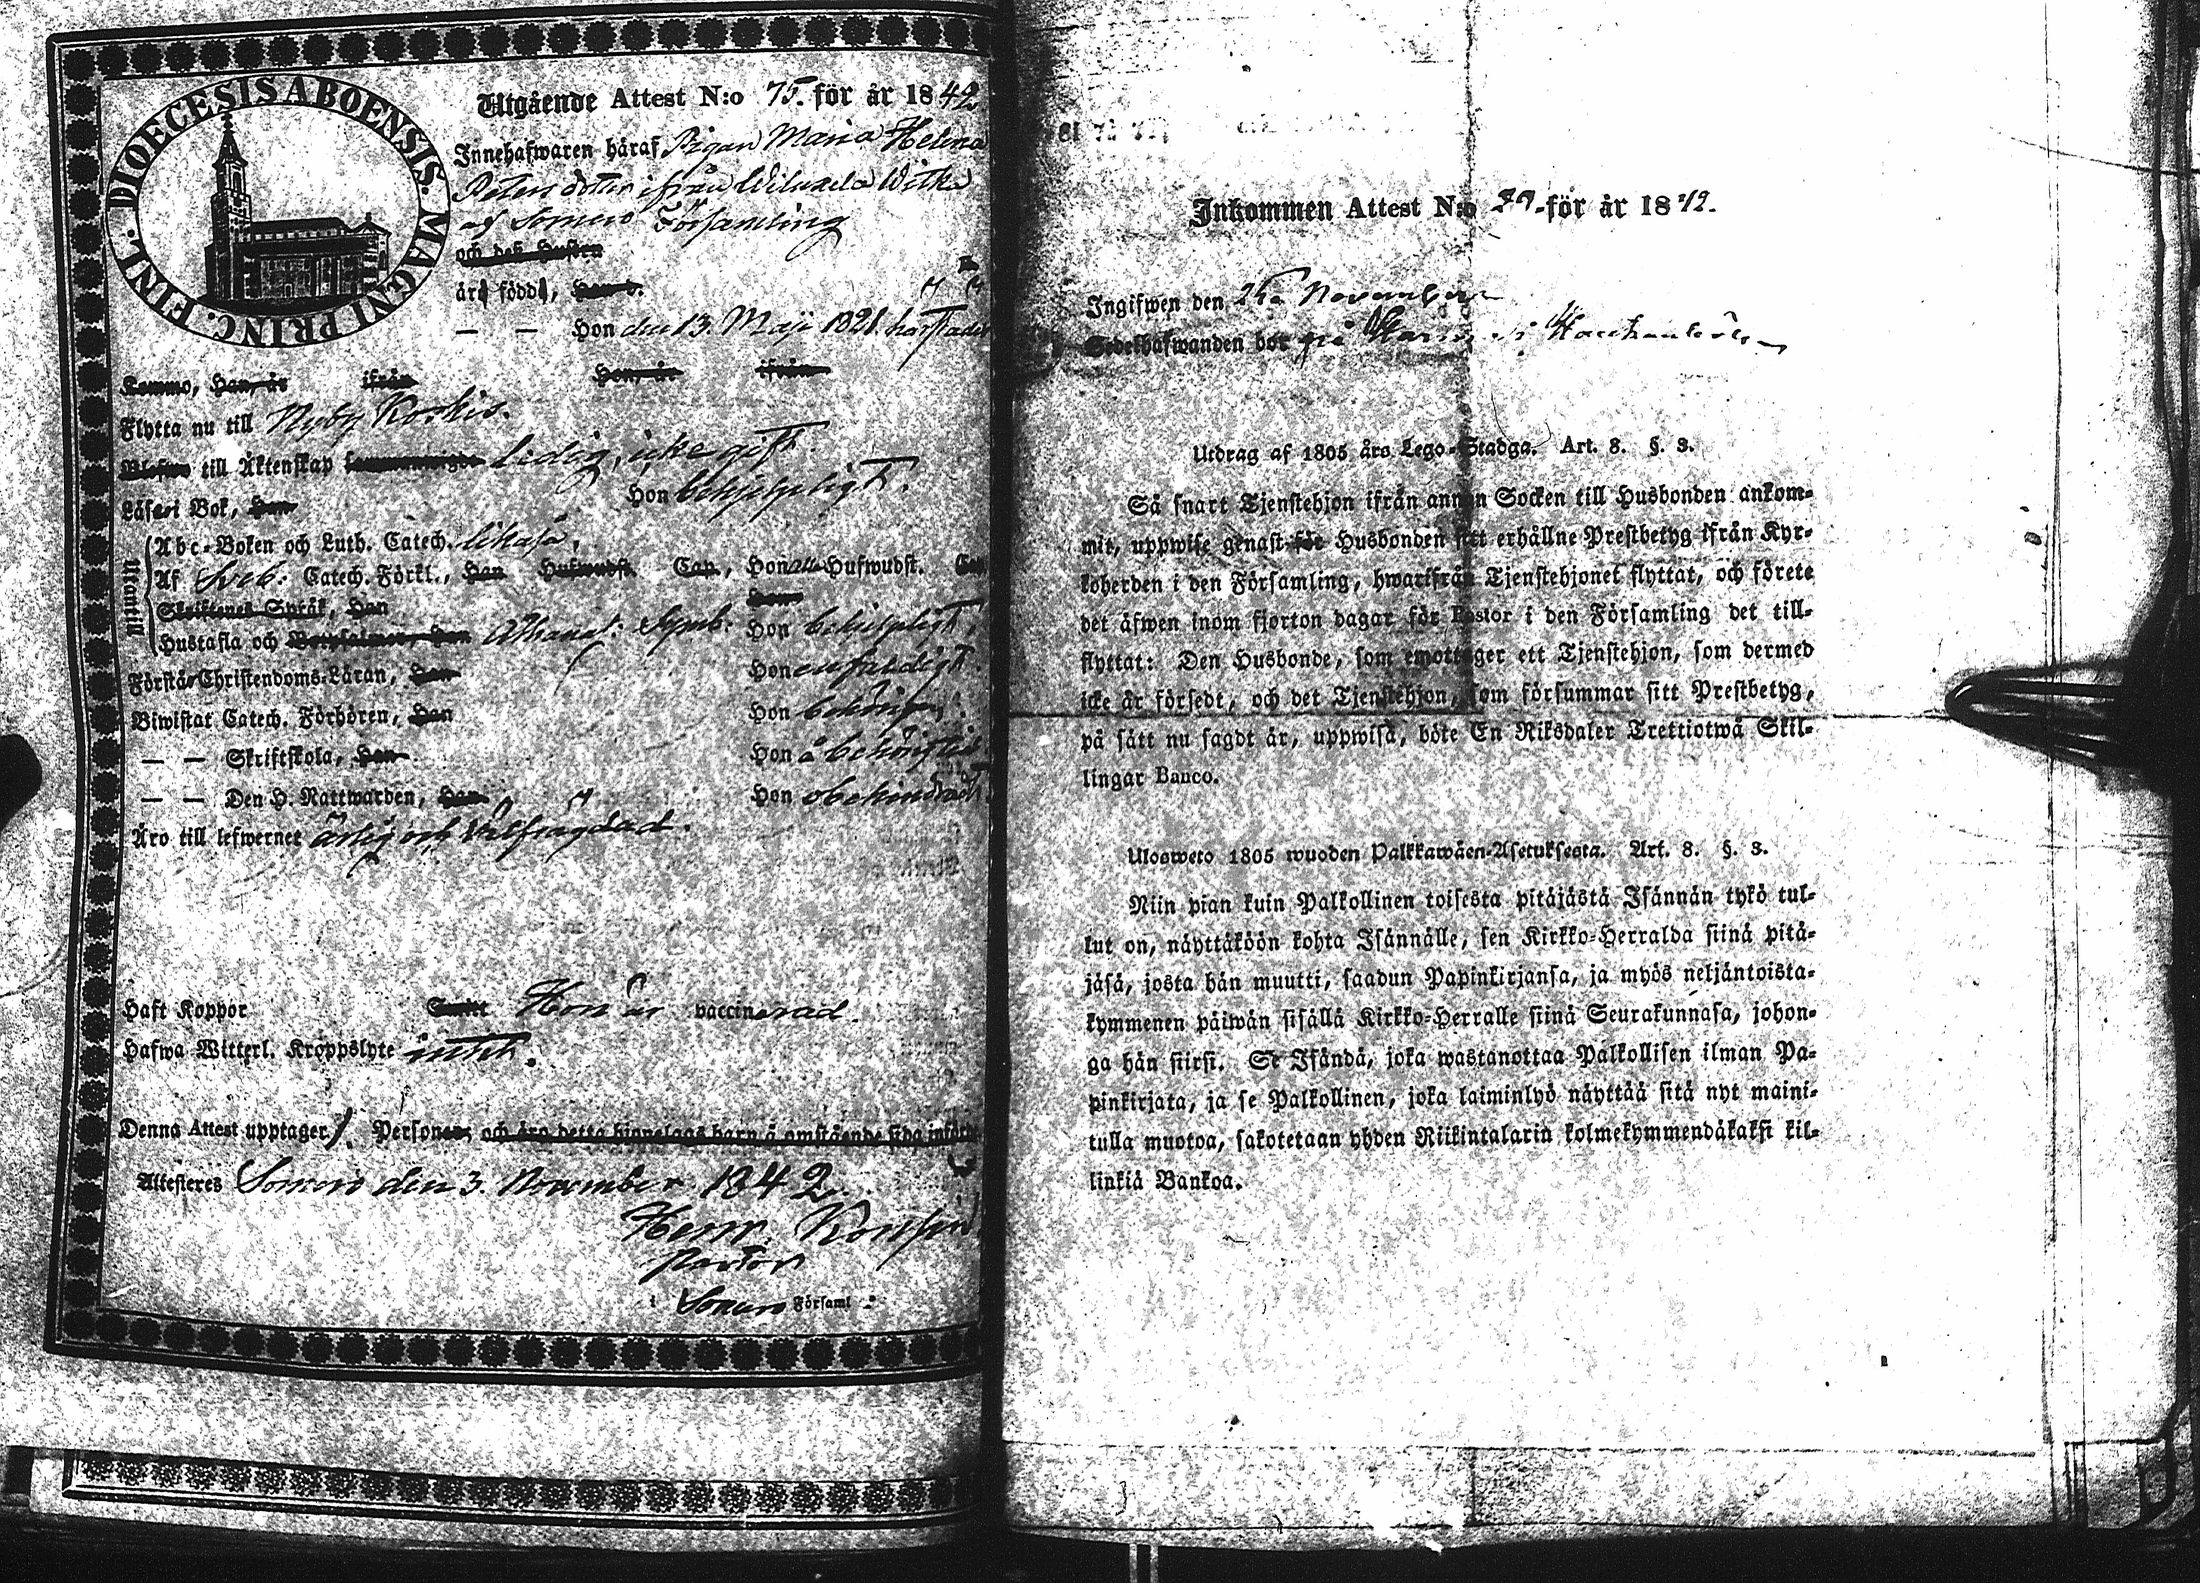 DIOECESIS ABOENSIS. MAGNI PRINC. FINL.
Utgående Attest N:o 75. för år 1842
Innehafwaren häraf, Pigan Maria Helena
Petersdotter ifrån Wiluxela Witka
af Somero Församling
och dess Hustru
äro födde, Han d.
— — Hon den 13. Maji 1821. härstädes
Komma, Han, år ifrån Hon, år ifrån
Flytta nu till Nyby Koskis.
Blefwo till Äktenskap sammanwigde Ledig, icke gift.
Läsa i Bok, Han Hon behjelpligt.
Utantill
Abc-Boken och Luth. Catech. likaså,
Af Sveb: Catech. Förkl., Han Hufwudst. Cap., Hon alla Hufwudst. Cap
Skriftenes Språk, Han Hon
Hustafla och Botpsalmer, Han Athanas: Symb: Hon behjelpligt,
Förstå Christendoms-Läran, Han Hon enfaldigt.
Biwistat Catech. Förhören, Han Hon behörigen
— — Skriftskola, Han Hon
— — Den H. Nattwarden, Han Hon obehindradt
Äro till lefwernet ärlig och Wälfrägdad.
Haft Koppor Samt Hon är vaccinerad
Hafwa Witterl. Kroppslyte intet.
Denna Attest upptager 1. Personer, och äro detta hjonelags barn å omstående sida införde
Attesteres Somero den 3. November 1842.
Pastor
i Somero Församl:
Inkommen Attest N:o för år 1842.
Ingifwen den November
Sedelhafwanden bor på
Utdrag af 1805 års Lego-Stadga. Art. 8. §. 3.
Så snart Tjenstehjon ifrån annan Socken till Husbonden ankom-
mit, uppwise genast för Husbonden sitt erhållne Prestbetyg ifrån Kyr-
koherden i den Församling, hwarifrån Tjenstehjonet flyttat, och förete
det äfwen inom fjorton dagar för Pastor i den Församling det till-
flyttat: Den Husbonde, som emottager ett Tjenstehjon, som dermed
icke är försedt, och det Tjenstehjon, som försummar sitt Prestbetyg,
på sätt nu sagdt är, uppwisa, böte En Riksdaler Trettiotwå Skil-
lingar Banco.
Ulosweto 1805 wuoden Palkkawäen-Asetuksesta. Art. 8. §. 3.
Niin pian kuin Palkollinen toisesta pitäjästä Isännän tykö tul-
lut on, näyttäköön kohta Isännälle, sen Kirkko-Herralda siinä pitä-
jäsä, josta hän muutti, saadun Papinkirjansa, ja myös neljäntoista-
kymmenen päiwän sisällä Kirkko-Herralle siinä Seurakunnasa, johon-
ga hän siirsi. Se Isändä, joka wastanottaa Palkollisen ilman Pa-
pinkirjata, ja se Palkollinen, joka laiminlyö näyttää sitä nyt maini-
tulla muotoa, sakotetaan yhden Riikintalarin kolmekymmendäkaksi kil-
linkiä Bankoa.